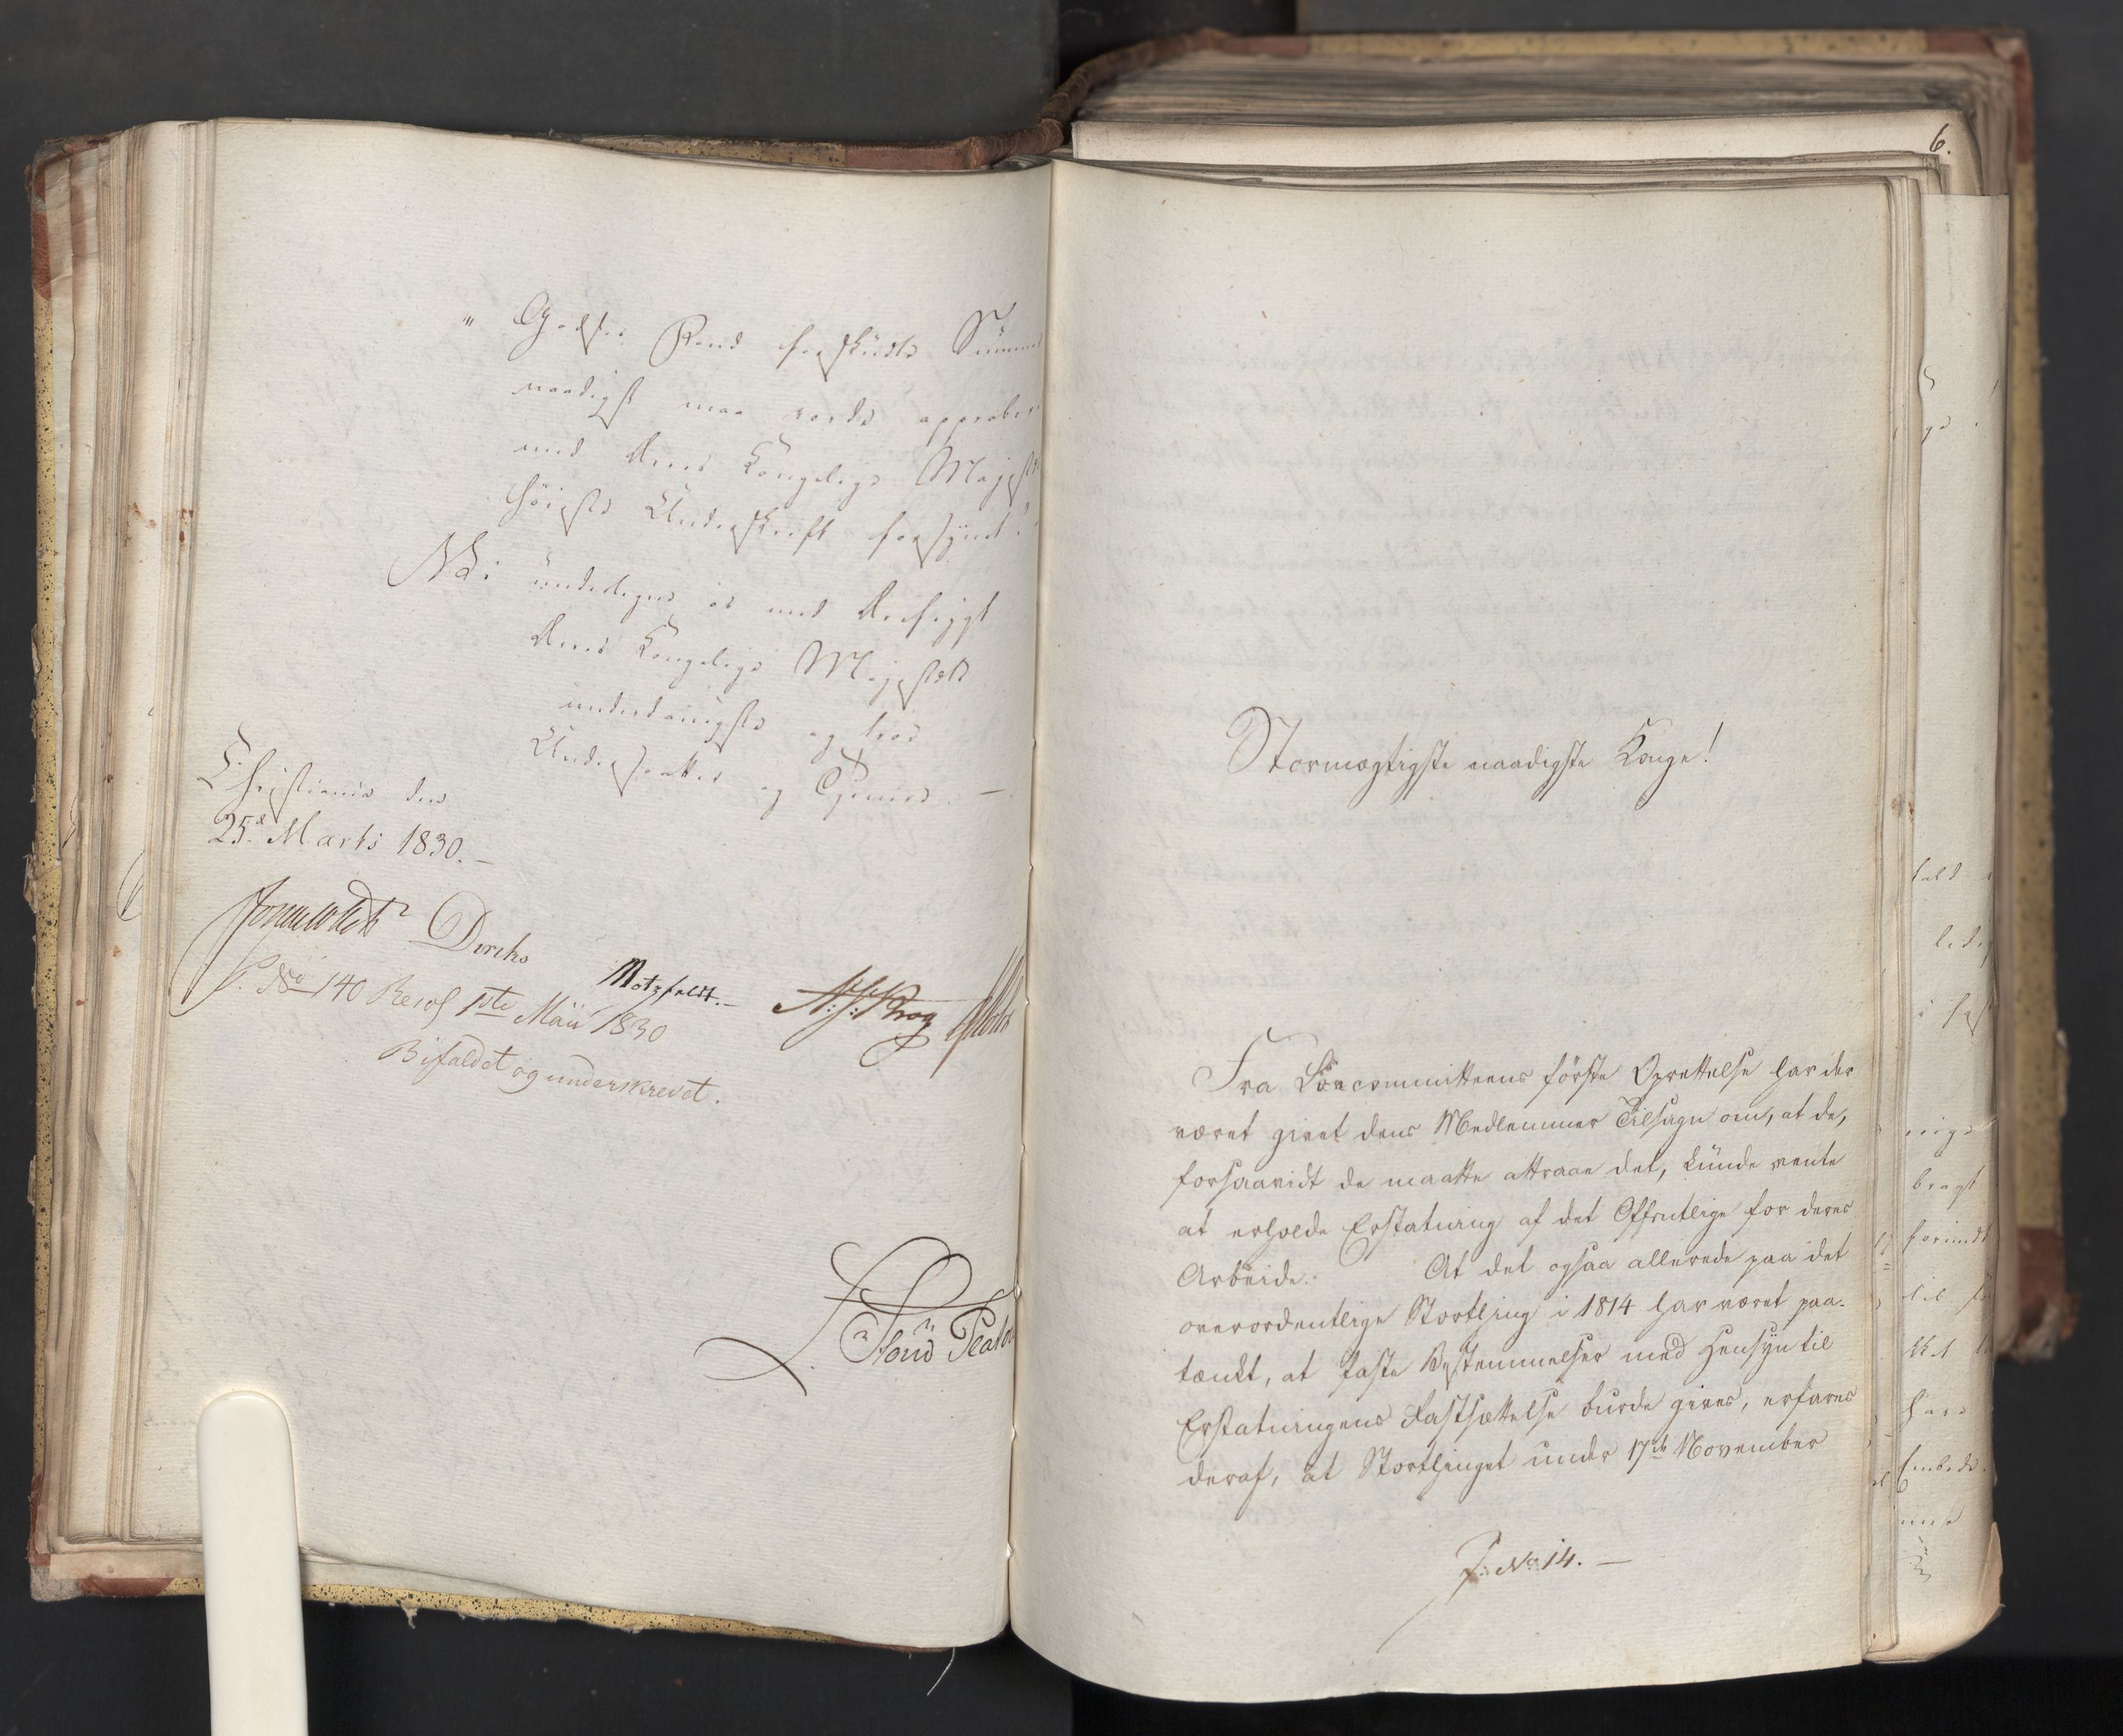 " Godses Fond forskudte Summe
naadigst maa vorde approber
med Deres Kongelige Majestæ
höieste Underskrift forsynet.
Vi undertegne os med Ærefrygt
Deres Kongelige Majestæts
underdanigste og troe
Undersaatter og Tjenere. —
Christiania den
25de Marts 1830. —
Diriks
Motzfeldt. —
P. No 140 Resol 1ste Maii 1830
Bifaldet og underskrevet.
6.
Stormægtigste naadigste Konge!
Fra Lovcommitteens förste Oprettelse har der
været givet dens Medlemmer Tilsagn om, at de,
forsaavidt de maatte attraae det, kunde vente
at erholde Erstatning af det Offentlige for deres
Arbeide. At det ogsaa allerede paa det
overordentlige Storthing i 1814 har været paa-
tænkt, at faste Bestemmelser med Hensyn til
Erstatningens Fastsættelse burde gives, erfares
deraf, at Storthinget under 17de November
P: No 14. —